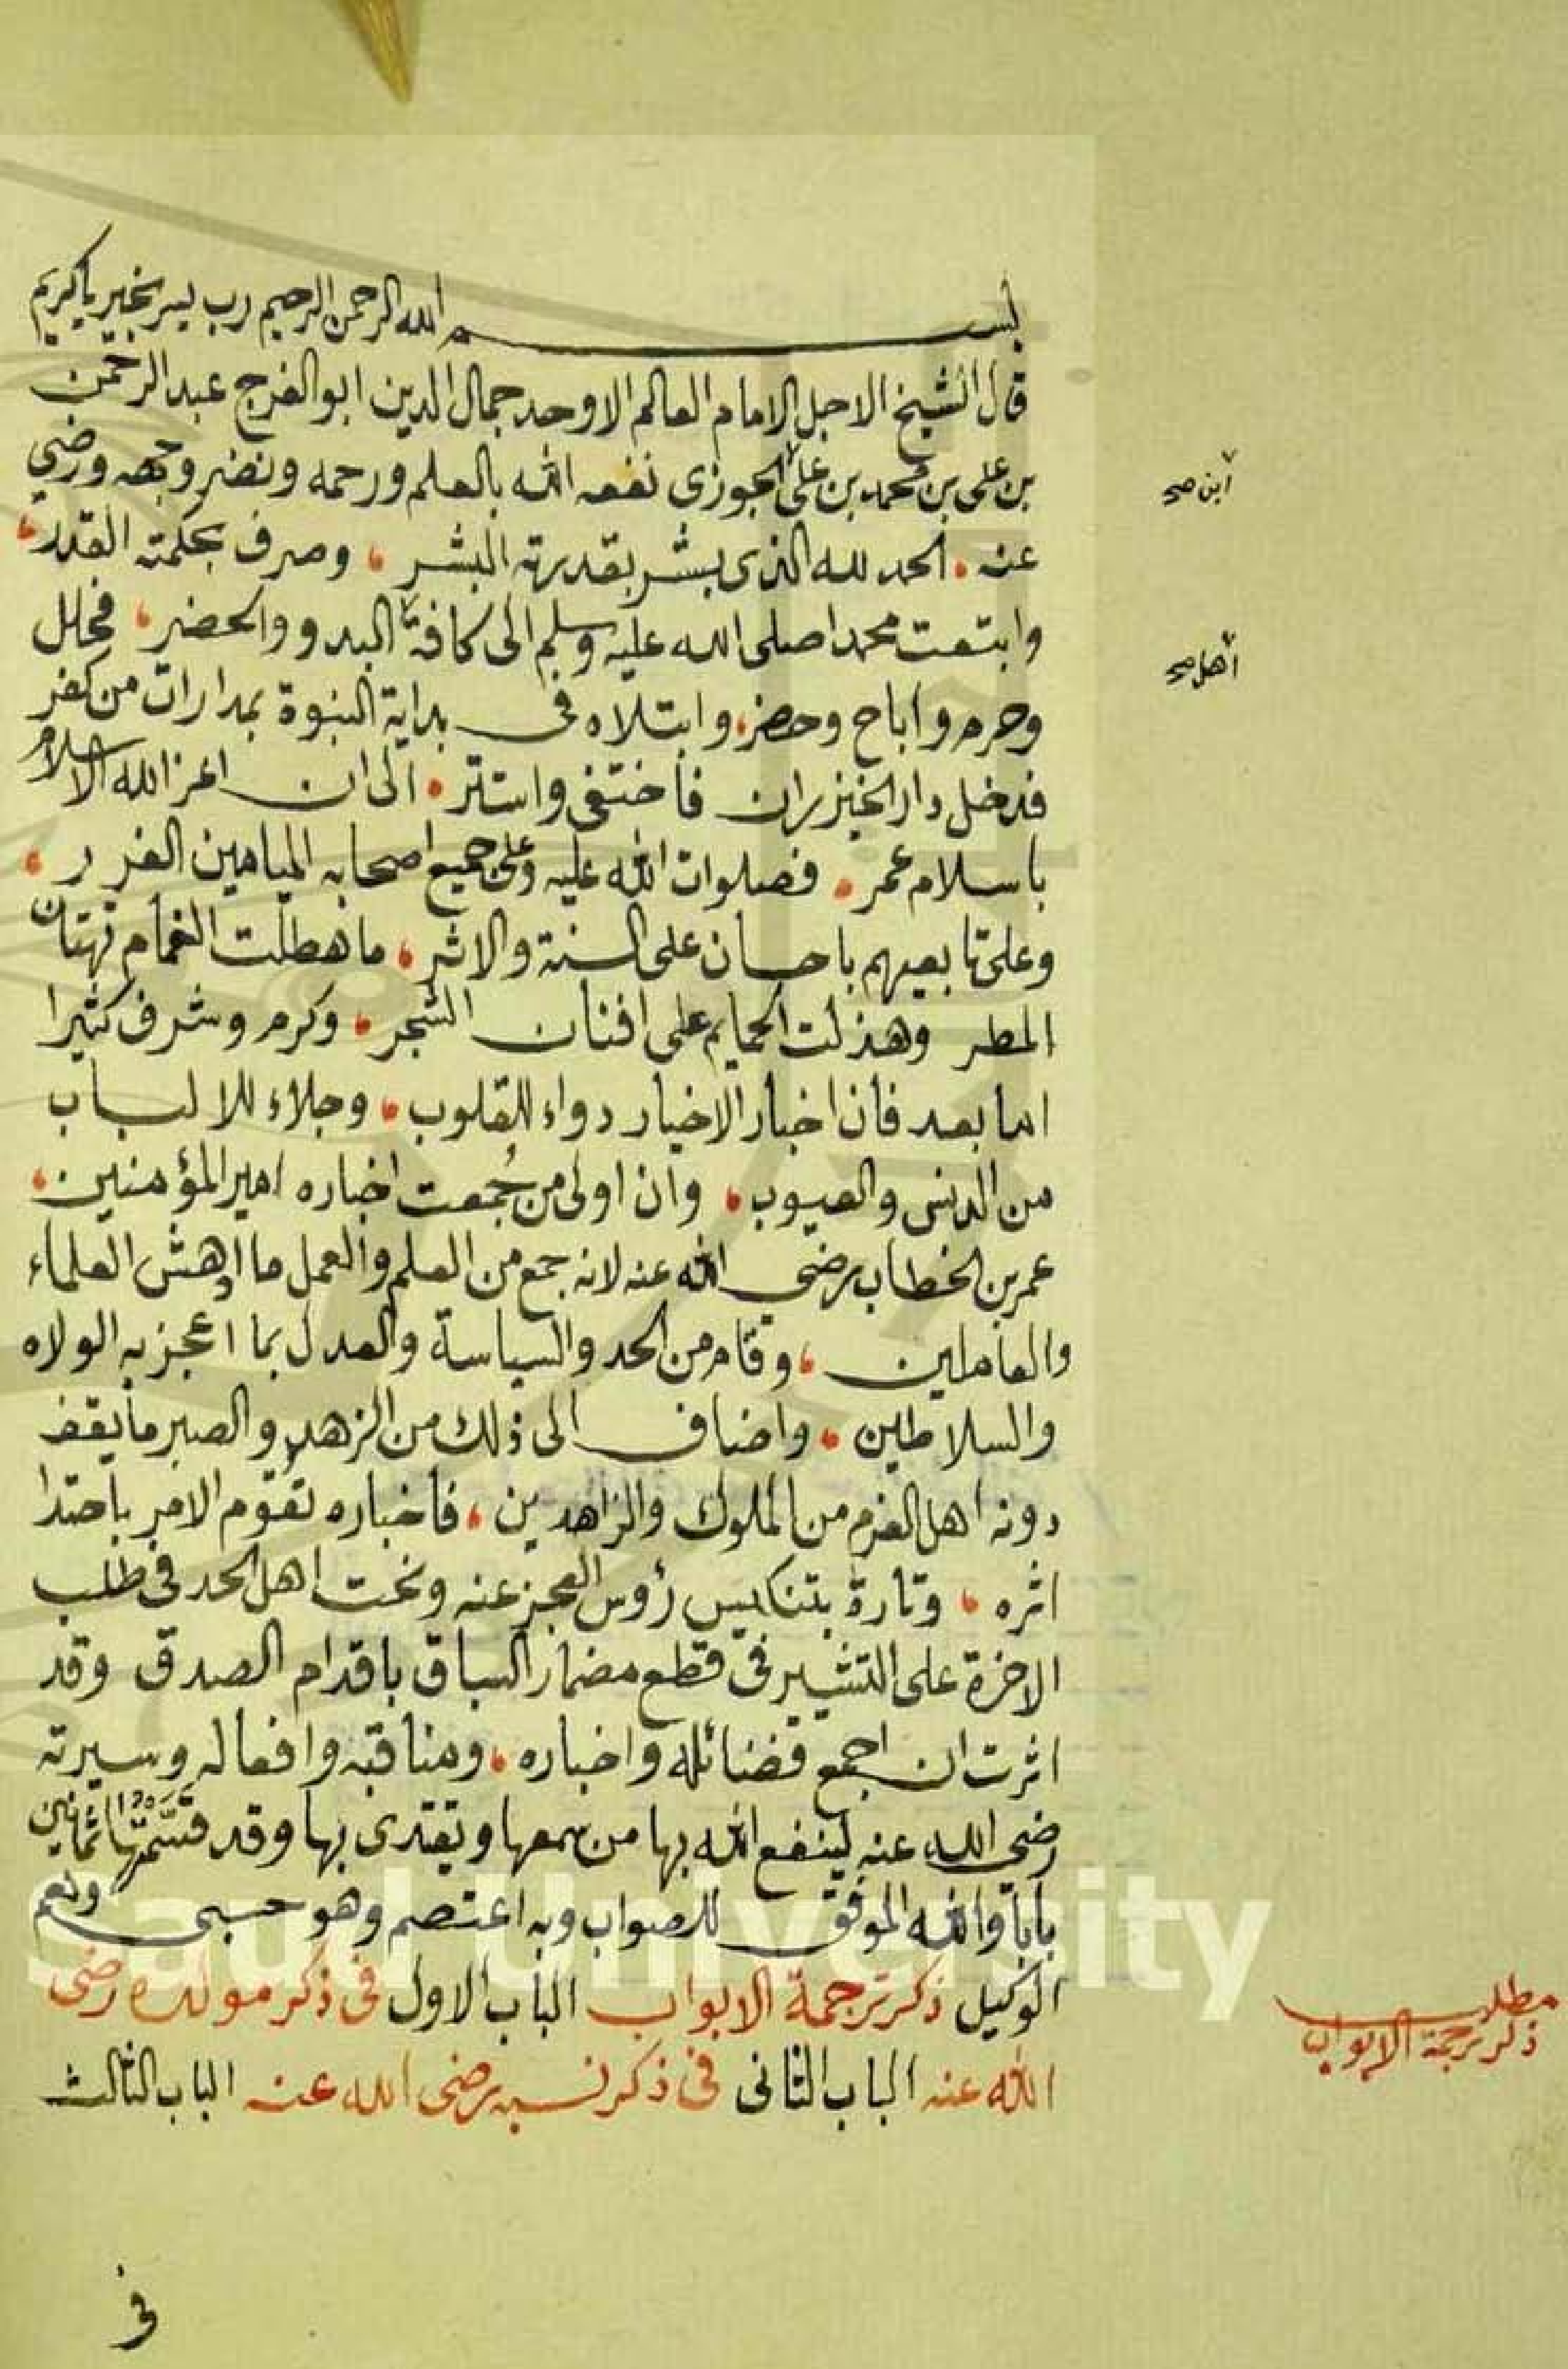 بسم الله الرحمن الرحيم رب يسر بخير يا كريم
قال الشيخ الاجل الامام العالم الاوحد جمال الدين ابو الفرج عبد الرحمن
بن على بن محمد بن على الجوزى نفعه الله بالعلم ورحمه ونضر وجهه ورضي
ابن صح
عنه . الحمد لله الذى بشر بقدرته البشر ، وصرف بحكمته القدر ،
وابتعث محمدا صلى الله عليه وسلم الى كافة البدو والحضر ، فحلل
اهل صح
وحرم واباح وحضر ، وابتلاه فى بداية النبوة بمدارات من كفر
فدخل دار الخيزران فاختفى واستتر . الى ان اعز الله الاسلام
باسلام عمر . فصلوات الله عليه وعلى جميع اصحابه الميامين الغرر ،
وعلى تابعيهم باحسان على السنة والاثر ، ما هطلت الغمام تهتان
المطر وهذلت الحمايم على افنان الشجر ، وكرم وشرف كثيرا
اما بعد فان اخبار الاخيار دواء للقلوب ، وجلاء للالباب
من الدنس والعيوب ، وان اولى من جُمعت اخباره امير المؤمنين ،
عمر بن الخطاب رضى الله عنه لانه جمع من العلم والعمل ما ادهش العلماء
والعاملين ، وقام من الحد والسياسة والعدل بما اعجز به الولاه
والسلاطين ، واضاف الى ذلك من الزهد والصبر ما يقف
دونه اهل العزم من الملوك والزاهدين ، فاخباره تقوم الامر باحتدا
اثره ، وتارة بتنكيس رؤس العجز عنه وتحت اهل الحد فى طلب
الاخرة على التشير فى قطع مضمار السباق باقدام الصدق وقد
اثرت ان اجمع فضائله واخباره ، ومناقبه وافعاله وسيرته
رضي الله عنه لينفع الله بها من سمعها ويقتدى بها وقد قسّمتها ثمانين
بابا والله الموفق للصواب وبه اعتصم وهو حسبى ونعم
الوكيل ذكر ترجمة الابواب الباب الاول فى ذكر مولده رضى
مطلب
ذكر ترجمة الابواب
الله عنه الباب الثانى فى ذكر نسبه رضى الله عنه الباب الثالث
فى
Saud University